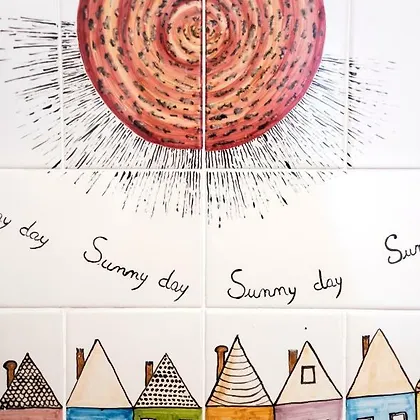 ny day Sunny day Sunny day Sun